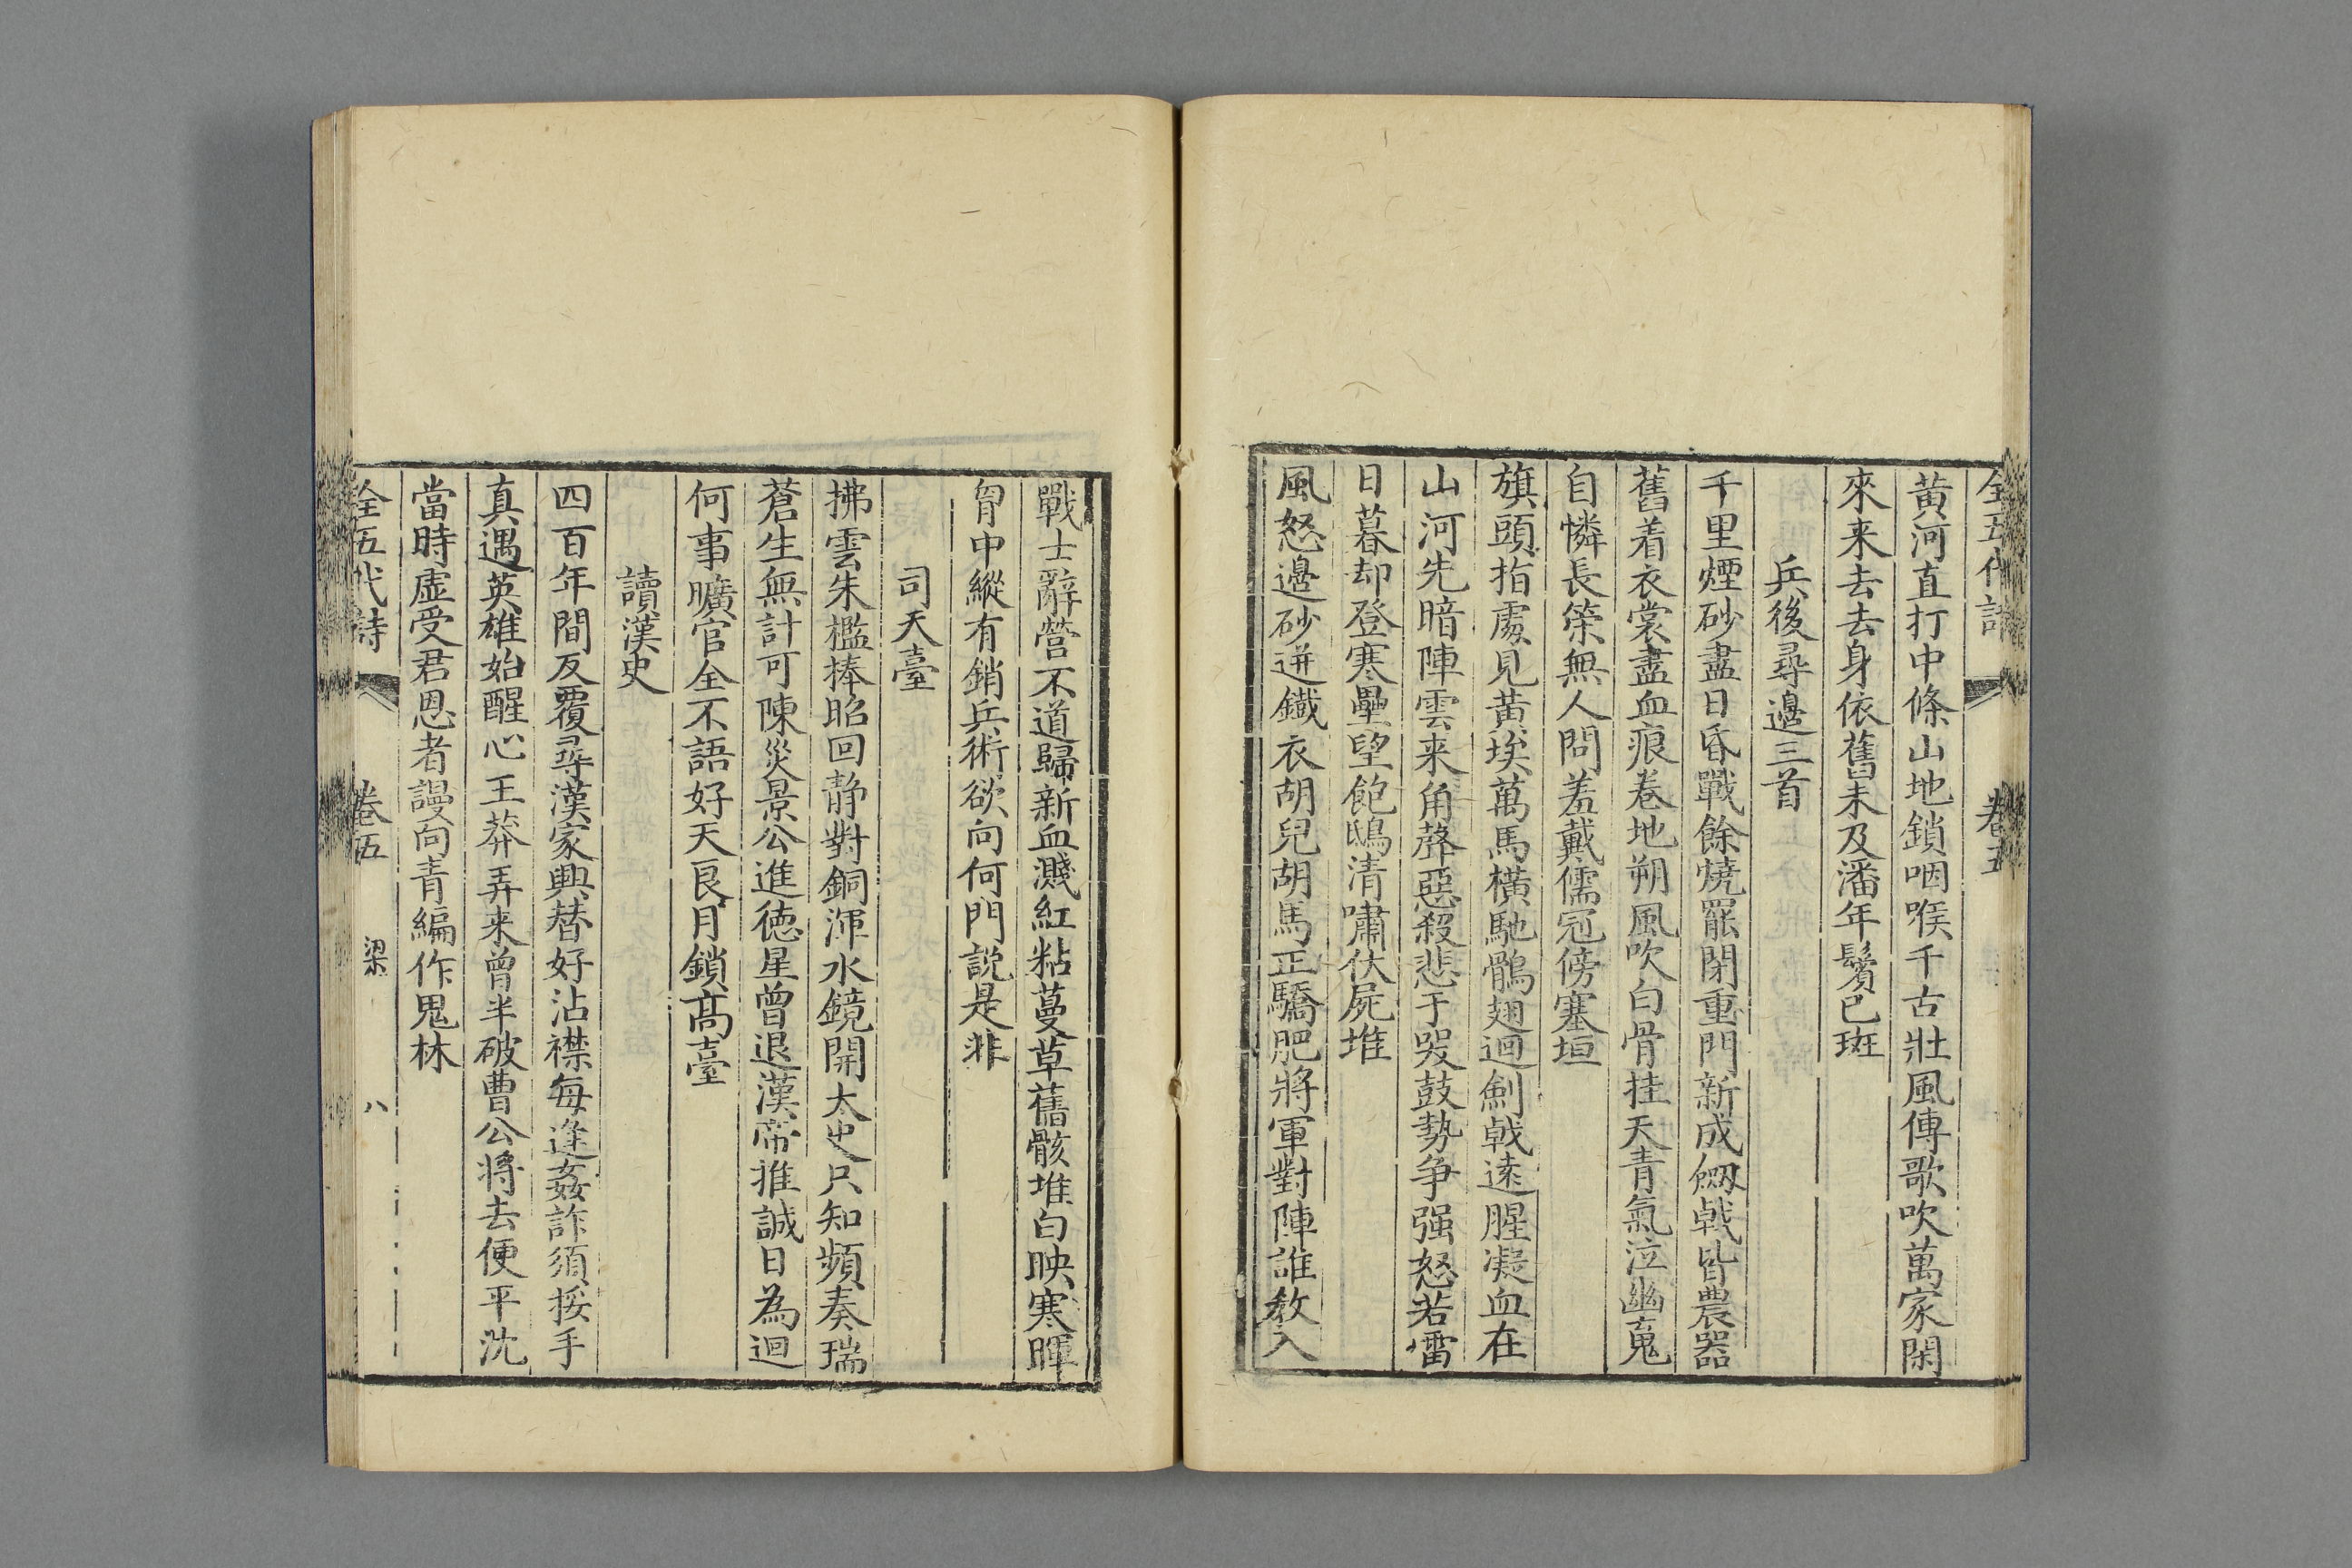 全五代詩 卷五
黄河直打中條山地鎖咽喉千古壯風傳歌吹萬家閑
來来去去身依舊未及潘年鬢已斑
兵後尋邊三首
千里煙砂盡日昏戰餘燒罷閉重門新成劔戟皆農器
舊着衣裳盡血痕卷地朔風吹白骨挂天青氣泣幽䰟
自憐長策無人問羞戴儒冠傍塞垣
旗頭指處見黄埃萬馬橫馳鶻翅迴劍戟逺腥凝血在
山河先暗陣雲来角聲惡殺悲于哭鼓勢争强怒若雷
日暮却登寒壘望飽鴟清嘯伏屍堆
風怒邊砂迸鐵衣胡兒胡馬正驕肥將軍對陣誰教入
戰士辭營不道歸新血濺紅粘蔓草舊骸堆白映寒暉
胷中縱有銷兵術欲向何門説是非
司天臺
拂雲朱檻捧昭回静對銅渾水鏡開太史只知頻奏瑞
蒼生無計可陳災景公進徳星曾退漢帝推誠日為迴
何事曠官全不語好天良月鎖髙臺
讀漢史
四百年間反覆尋漢家興替好沾襟每逢姦詐須挼手
真遇英雄始醒心王莽弄来曾半破曹公將去便平沈
當時虛受君恩者謾向青編作鬼林
全五代詩 卷五 梁 八